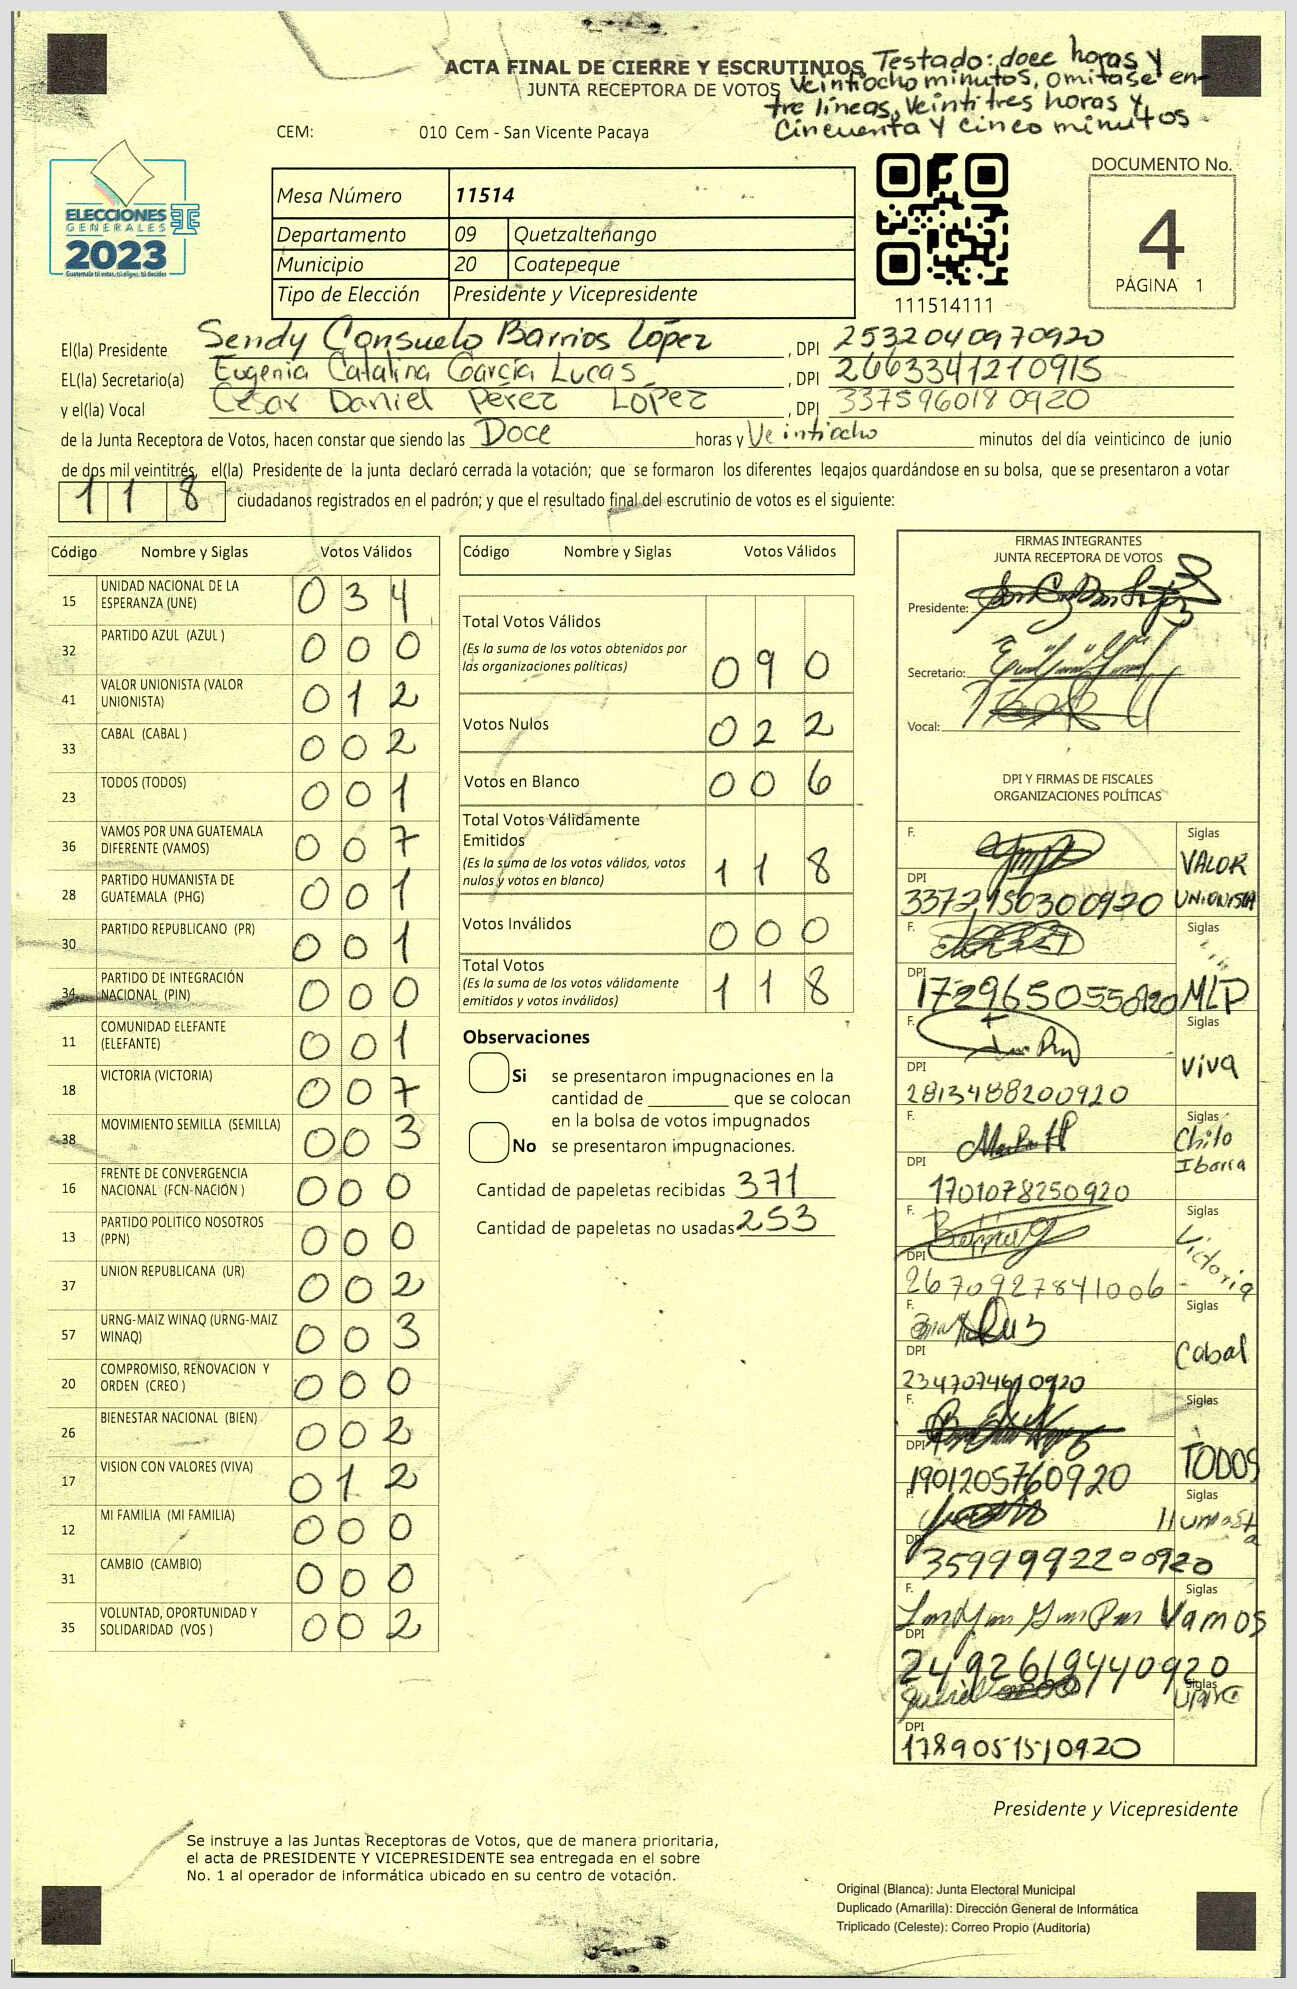 ACTA FINAL DE CIERRE Y ESCRUTINIOS
JUNTA RECEPTORA DE VOTOS
Testado: doce horas y
Veintiocho minutos, omitase en-
tre líneas, Veintitres horas y
Cincuenta y cinco minutos.
CEM: 010 Cem - San Vicente Pacaya
ELECCIONES
GENERALES
2023
Guatemala tú votas, tú eliges, tú decides
Mesa Número 11514
Departamento 09 Quetzaltenango
Municipio 20 Coatepeque
Tipo de Elección Presidente y Vicepresidente
111514111
DOCUMENTO No.
4
PÁGINA 1
El(la) Presidente Sendy Consuelo Barrios López , DPI 2532040970920
EL(la) Secretario(a) Eugenia Catalina García Lucas , DPI 2663341210915
y el(la) Vocal César Daniel Pérez López , DPI 3375960180920
de la Junta Receptora de Votos, hacen constar que siendo las Doce horas y Veintiocho minutos del día veinticinco de junio
de dos mil veintitrés, el(la) Presidente de la junta declaró cerrada la votación; que se formaron los diferentes legajos guardándose en su bolsa, que se presentaron a votar
118 ciudadanos registrados en el padrón; y que el resultado final del escrutinio de votos es el siguiente:
Código Nombre y Siglas Votos Válidos
15 UNIDAD NACIONAL DE LA
ESPERANZA (UNE) 034
32 PARTIDO AZUL (AZUL ) 000
41 VALOR UNIONISTA (VALOR
UNIONISTA) 012
33 CABAL (CABAL ) 002
23 TODOS (TODOS) 001
36 VAMOS POR UNA GUATEMALA
DIFERENTE (VAMOS) 007
28 PARTIDO HUMANISTA DE
GUATEMALA (PHG) 001
30 PARTIDO REPUBLICANO (PR) 001
34 PARTIDO DE INTEGRACIÓN
NACIONAL (PIN) 000
11 COMUNIDAD ELEFANTE
(ELEFANTE) 001
18 VICTORIA (VICTORIA) 007
38 MOVIMIENTO SEMILLA (SEMILLA) 003
16 FRENTE DE CONVERGENCIA
NACIONAL (FCN-NACION ) 000
13 PARTIDO POLITICO NOSOTROS
(PPN) 000
37 UNION REPUBLICANA (UR) 002
57 URNG-MAIZ WINAQ (URNG-MAIZ
WINAQ) 003
20 COMPROMISO, RENOVACION Y
ORDEN (CREO ) 000
26 BIENESTAR NACIONAL (BIEN) 002
17 VISION CON VALORES (VIVA) 012
12 MI FAMILIA (MI FAMILIA) 000
31 CAMBIO (CAMBIO) 000
35 VOLUNTAD, OPORTUNIDAD Y
SOLIDARIDAD (VOS ) 002
Código Nombre y Siglas Votos Válidos
Total Votos Válidos
(Es la suma de los votos obtenidos por
las organizaciones políticas) 090
Votos Nulos 022
Votos en Blanco 006
Total Votos Válidamente
Emitidos
(Es la suma de los votos válidos, votos
nulos y votos en blanco) 118
Votos Inválidos 000
Total Votos
(Es la suma de los votos válidamente
emitidos y votos inválidos) 118
Observaciones
Si se presentaron impugnaciones en la
cantidad de ________ que se colocan
en la bolsa de votos impugnados
No se presentaron impugnaciones.
Cantidad de papeletas recibidas 371
Cantidad de papeletas no usadas 253
FIRMAS INTEGRANTES
JUNTA RECEPTORA DE VOTOS
Presidente:
Secretario:
Vocal:
DPI Y FIRMAS DE FISCALES
ORGANIZACIONES POLÍTICAS
F. Siglas
VALOR
UNIONISTA
DPI
3372150300920
F. Siglas
DPI
1729650550920 MLP
F. Siglas
VIVA
DPI
2813488200920
F. Siglas
Chilo
Ibarra
DPI
1701078250920
F. Siglas
Victoria
DPI
2670927841006
F. Siglas
Cabal
DPI
2347074610920
F. Siglas
DPI
1901205760920 TODOS
F. Siglas
DPI
3599992200920
F. Siglas
Vamos
DPI
2492619440920
Siglas
DPI
1789051510920
Presidente y Vicepresidente
Se instruye a las Juntas Receptoras de Votos, que de manera prioritaria,
el acta de PRESIDENTE Y VICEPRESIDENTE sea entregada en el sobre
No. 1 al operador de informática ubicado en su centro de votación.
Original (Blanca): Junta Electoral Municipal
Duplicado (Amarilla): Dirección General de Informática
Triplicado (Celeste): Correo Propio (Auditoría)